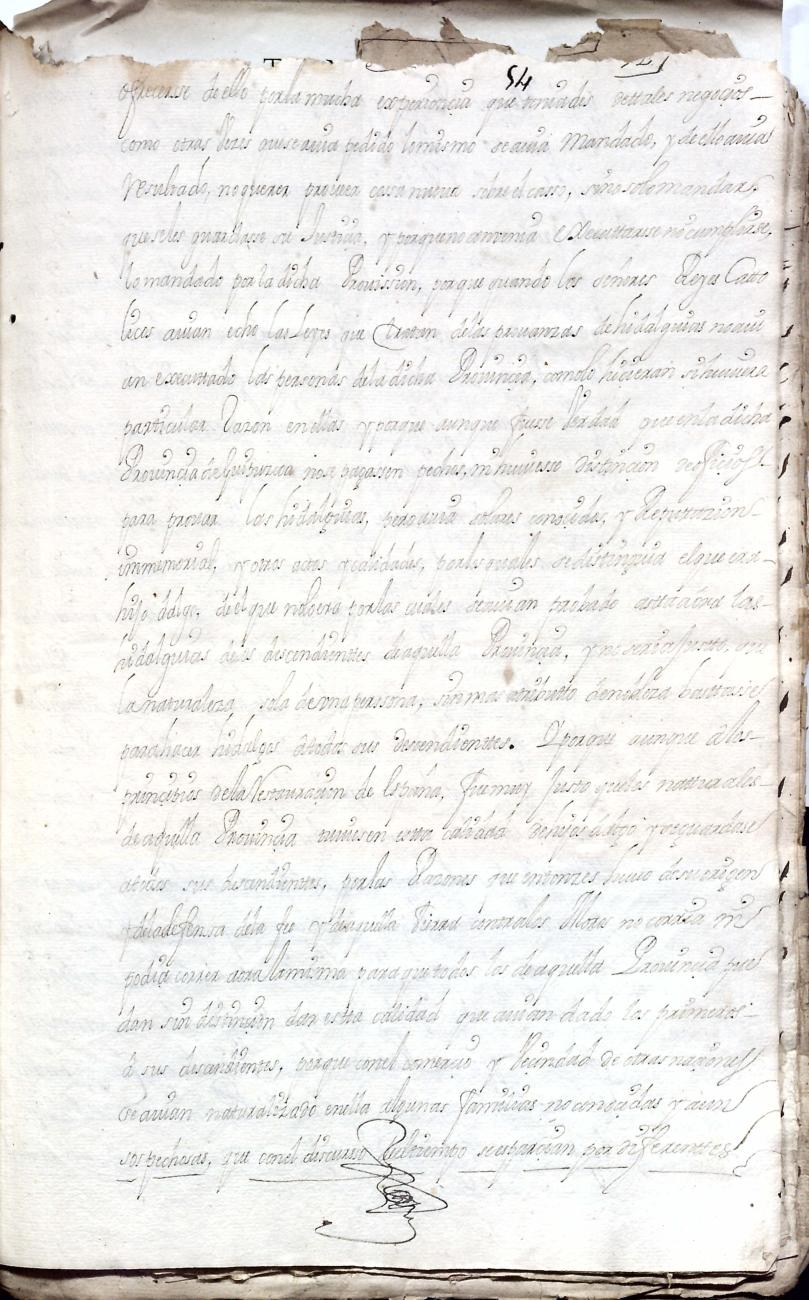 54
ofrecerse de ello por la mucha experiencia que teniades de tales negocios
como otras veces que se avia pedido lo mismo se avia Mandado, y de ello avia
Resultado, no querer proveer cossa nueva sobre el casso, sino solo mandar
que se les guardasse su Justicia, y porque no convenia executtarse no cumplirse
lo mandado por la dicha Provission, porque quando los señores Reyes Catto
licos avian echo las Leyes que Tratan de las provanzas de hidalguias no avi
an exceuttado las personas de la dicha Provincia, como lo hicieran si huviera
particular Razon en ellas y porque aunque fuesse Verdad que en la dicha
Provincia de Guipuzcoa no se pagassen pechos, ni huviesse distincion de oficios
para provar las hidalguias, pero avia solares conocidos, y Reputtazion
immemorial, y otros actos y calidades, por los quales se distinguia el que era
hijo dalgo, de el que no lo era por las cuales se avian probado asta aora las
hidalguias de los descendienttes de aquella Provincia, y no seria justto, que
la naturaleza sola de una persona, sin mas atributto de nobleza basttasse
para hacer hidalgos a todos sus descendienttes. Y porque aunque a los
principios de la Restauracion de España, fue muy Justo que los natturales
de aquella Provincia tuviesen estta calidad de hijos dalgo y se guardase
a todos sus descendientes, por las Razones que entonzes huvo de su origen
y de la defensa de la fee y de aquella Tierra contra los Moros no corria ni
podia correr aora la misma para que todos los de aquella Provincia pue
dan sin distincion dar estta calidad que avian dado los primeros
a sus descendientes, porque con el comercio y Vecindad de otras naziones
se avian naturalizado en ella algunas familias no conocidas y aun
sospechosas, que con el discurso del tiempo se esparcian por diferenttes